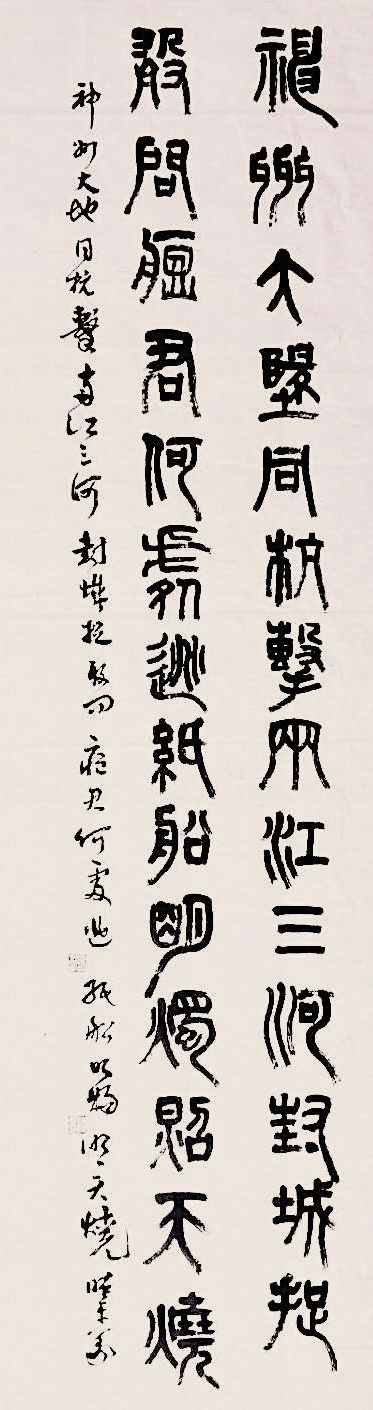 神州大地同抗擊兩江三河封城捉
殺問瘟君何處逃紙船明燭照天燒
神州大地同抗擊兩江三河封城捉殺問瘟君何處逃紙船明燭天燒